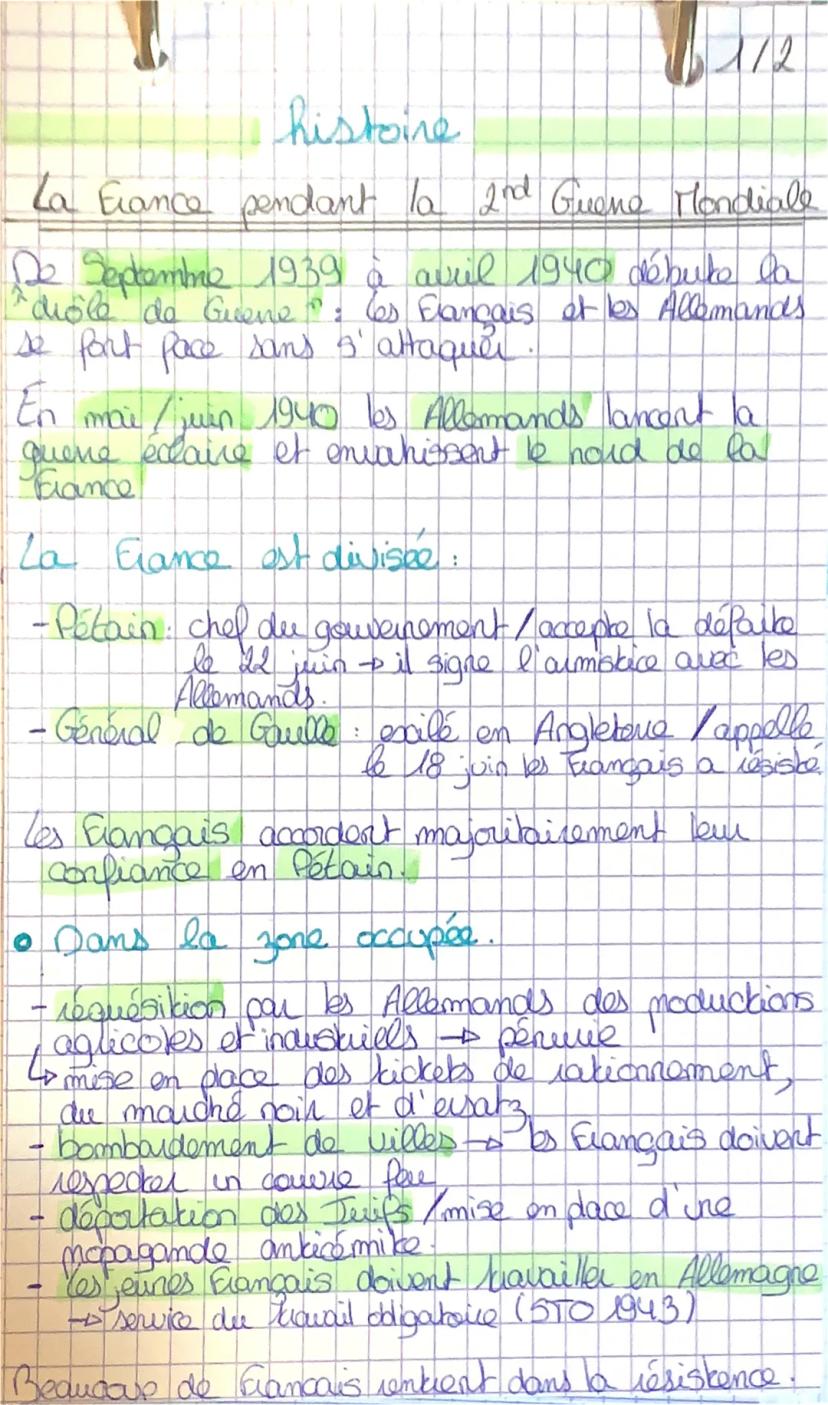 1/2
histoire
La France pendant la 2nd Guerre Mondiale
De Septembre 1939 à avril 1940 débute la
"drôle de Guerre" : les Français et les Allemands
se font face sans s'attaquer.
En mai / juin 1940 les Allemands lancent la
guerre éclaire et envahissent le nord de la
France
La France est divisée :
- Pétain : chef du gouvernement / accepte la défaite
le 22 juin → il signe l'armistice avec les
Allemands.
- Général de Gaulle : exilé en Angleterre / appelle
le 18 juin les Français a résisté.
Les Français accordent majoritairement leur
confiance en Pétain.
• Dans la zone occupée.
- réquésition par les Allemands des productions
agricoles et industriells → pénurie
↳ mise en place des tickets de rationnement,
du marché noir et d'ersatz.
- bombardement de villes → les Français doivent
respecter un couvre feu
- déportation des Juifs / mise en place d'une
propagande anticémite.
- les jeunes Français doivent travailler en Allemagne
→ service du travail obligatoire (STO 1943)
Beaucoup de Francais rentrent dans la résistence.